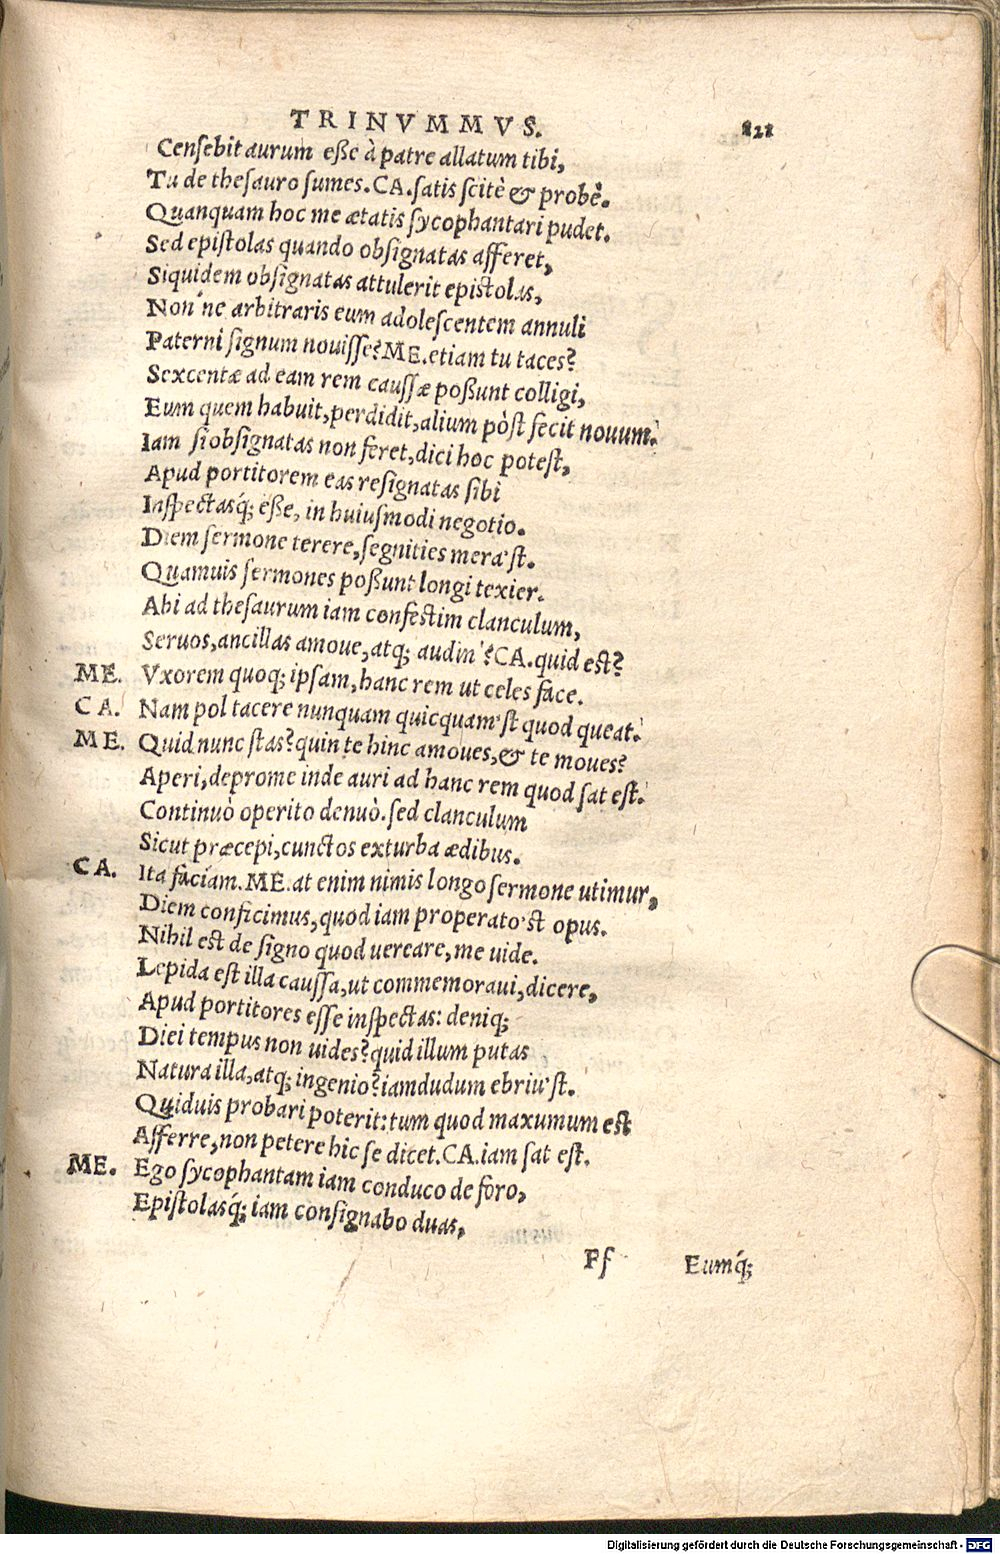 TRINVMMVS. 821
Censebit aurum eße à patre allatum tibi,
Tu de thesauro sumes. CA. satis scitè & probè.
Quanquam hoc me ætatis sycophantari pudet.
Sed epistolas quando obsignatas afferet,
Siquidem obsignatas attulerit epistolas,
Non'ne arbitraris eum adolescentem annuli
Paterni signum nouisse? ME. etiam tu taces?
Sexcentæ ad eam rem caussæ poßunt colligi,
Eum quem habuit, perdidit, alium pòst fecit nouum.
Iam si obsignatas non feret, dici hoc potest,
Apud portitorem eas resignatas sibi
Inspectasq́; eße, in huiusmodi negotio.
Diem sermone terere, segnities mera'st.
Quamuis sermones poßunt longi texier.
Abi ad thesaurum iam confestim clanculum,
Seruos, ancillas amoue, atq; audin'? CA. quid est?
ME. Vxorem quoq; ipsam, hanc rem ut celes face.
CA. Nam pol tacere nunquam quicquam'st quod queat.
ME. Quid nunc stas? quin te hinc amoues, & te moues?
Aperi, deprome inde auri ad hanc rem quod sat est.
Continuò operito denuò. sed clanculum
Sicut præcepi, cunctos exturba ædibus.
CA. Ita faciam. ME. at enim nimis longo sermone utimur,
Diem conficimus, quod iam properato'st opus.
Nihil est de signo quod uereare, me uide.
Lepida est illa caussa, ut commemoraui, dicere,
Apud portitores esse inspectas: deniq;
Diei tempus non uides? quid illum putas
Natura illa, atq; ingenio? iamdudum ebriu'st.
Quiduis probari poterit: tum quod maxumum est
Afferre, non petere hic se dicet. CA. iam sat est.
ME. Ego sycophantam iam conduco de foro,
Epistolasq́; iam consignabo duas,
Ff Eumq́;
Digitalisierung gefördert durch die Deutsche Forschungsgemeinschaft - DFG